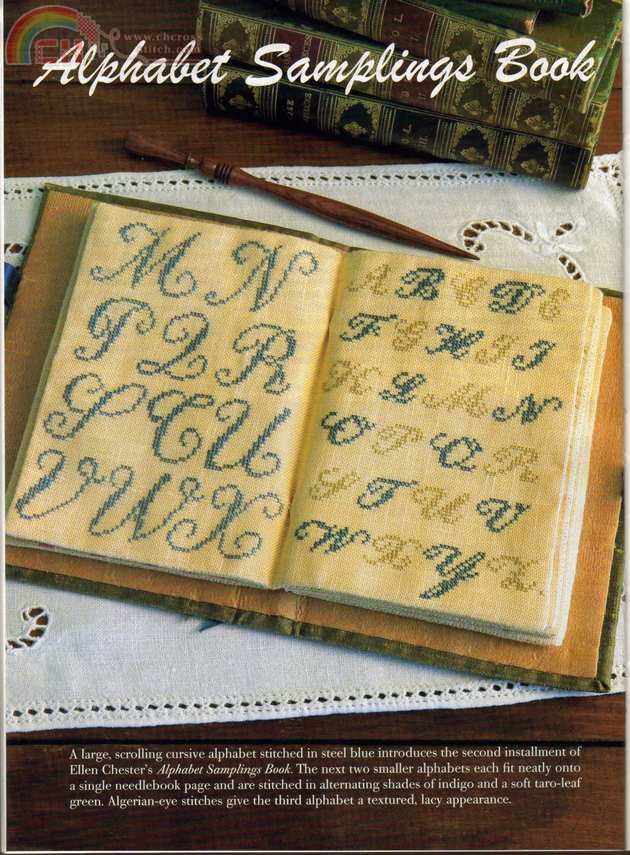 www.chcross
stitch.com
Alphabet Samplings Book
M N
P Q R
S T U
V W X
A B C D E
F G H I J
K L M N
O P Q R
S T U V
W X Y Z
A large, scrolling cursive alphabet stitched in steel blue introduces the second installment of
Ellen Chester's Alphabet Samplings Book. The next two smaller alphabets each fit neatly onto
a single needlebook page and are stitched in alternating shades of indigo and a soft taro-leaf
green. Algerian-eye stitches give the third alphabet a textured, lacy appearance.